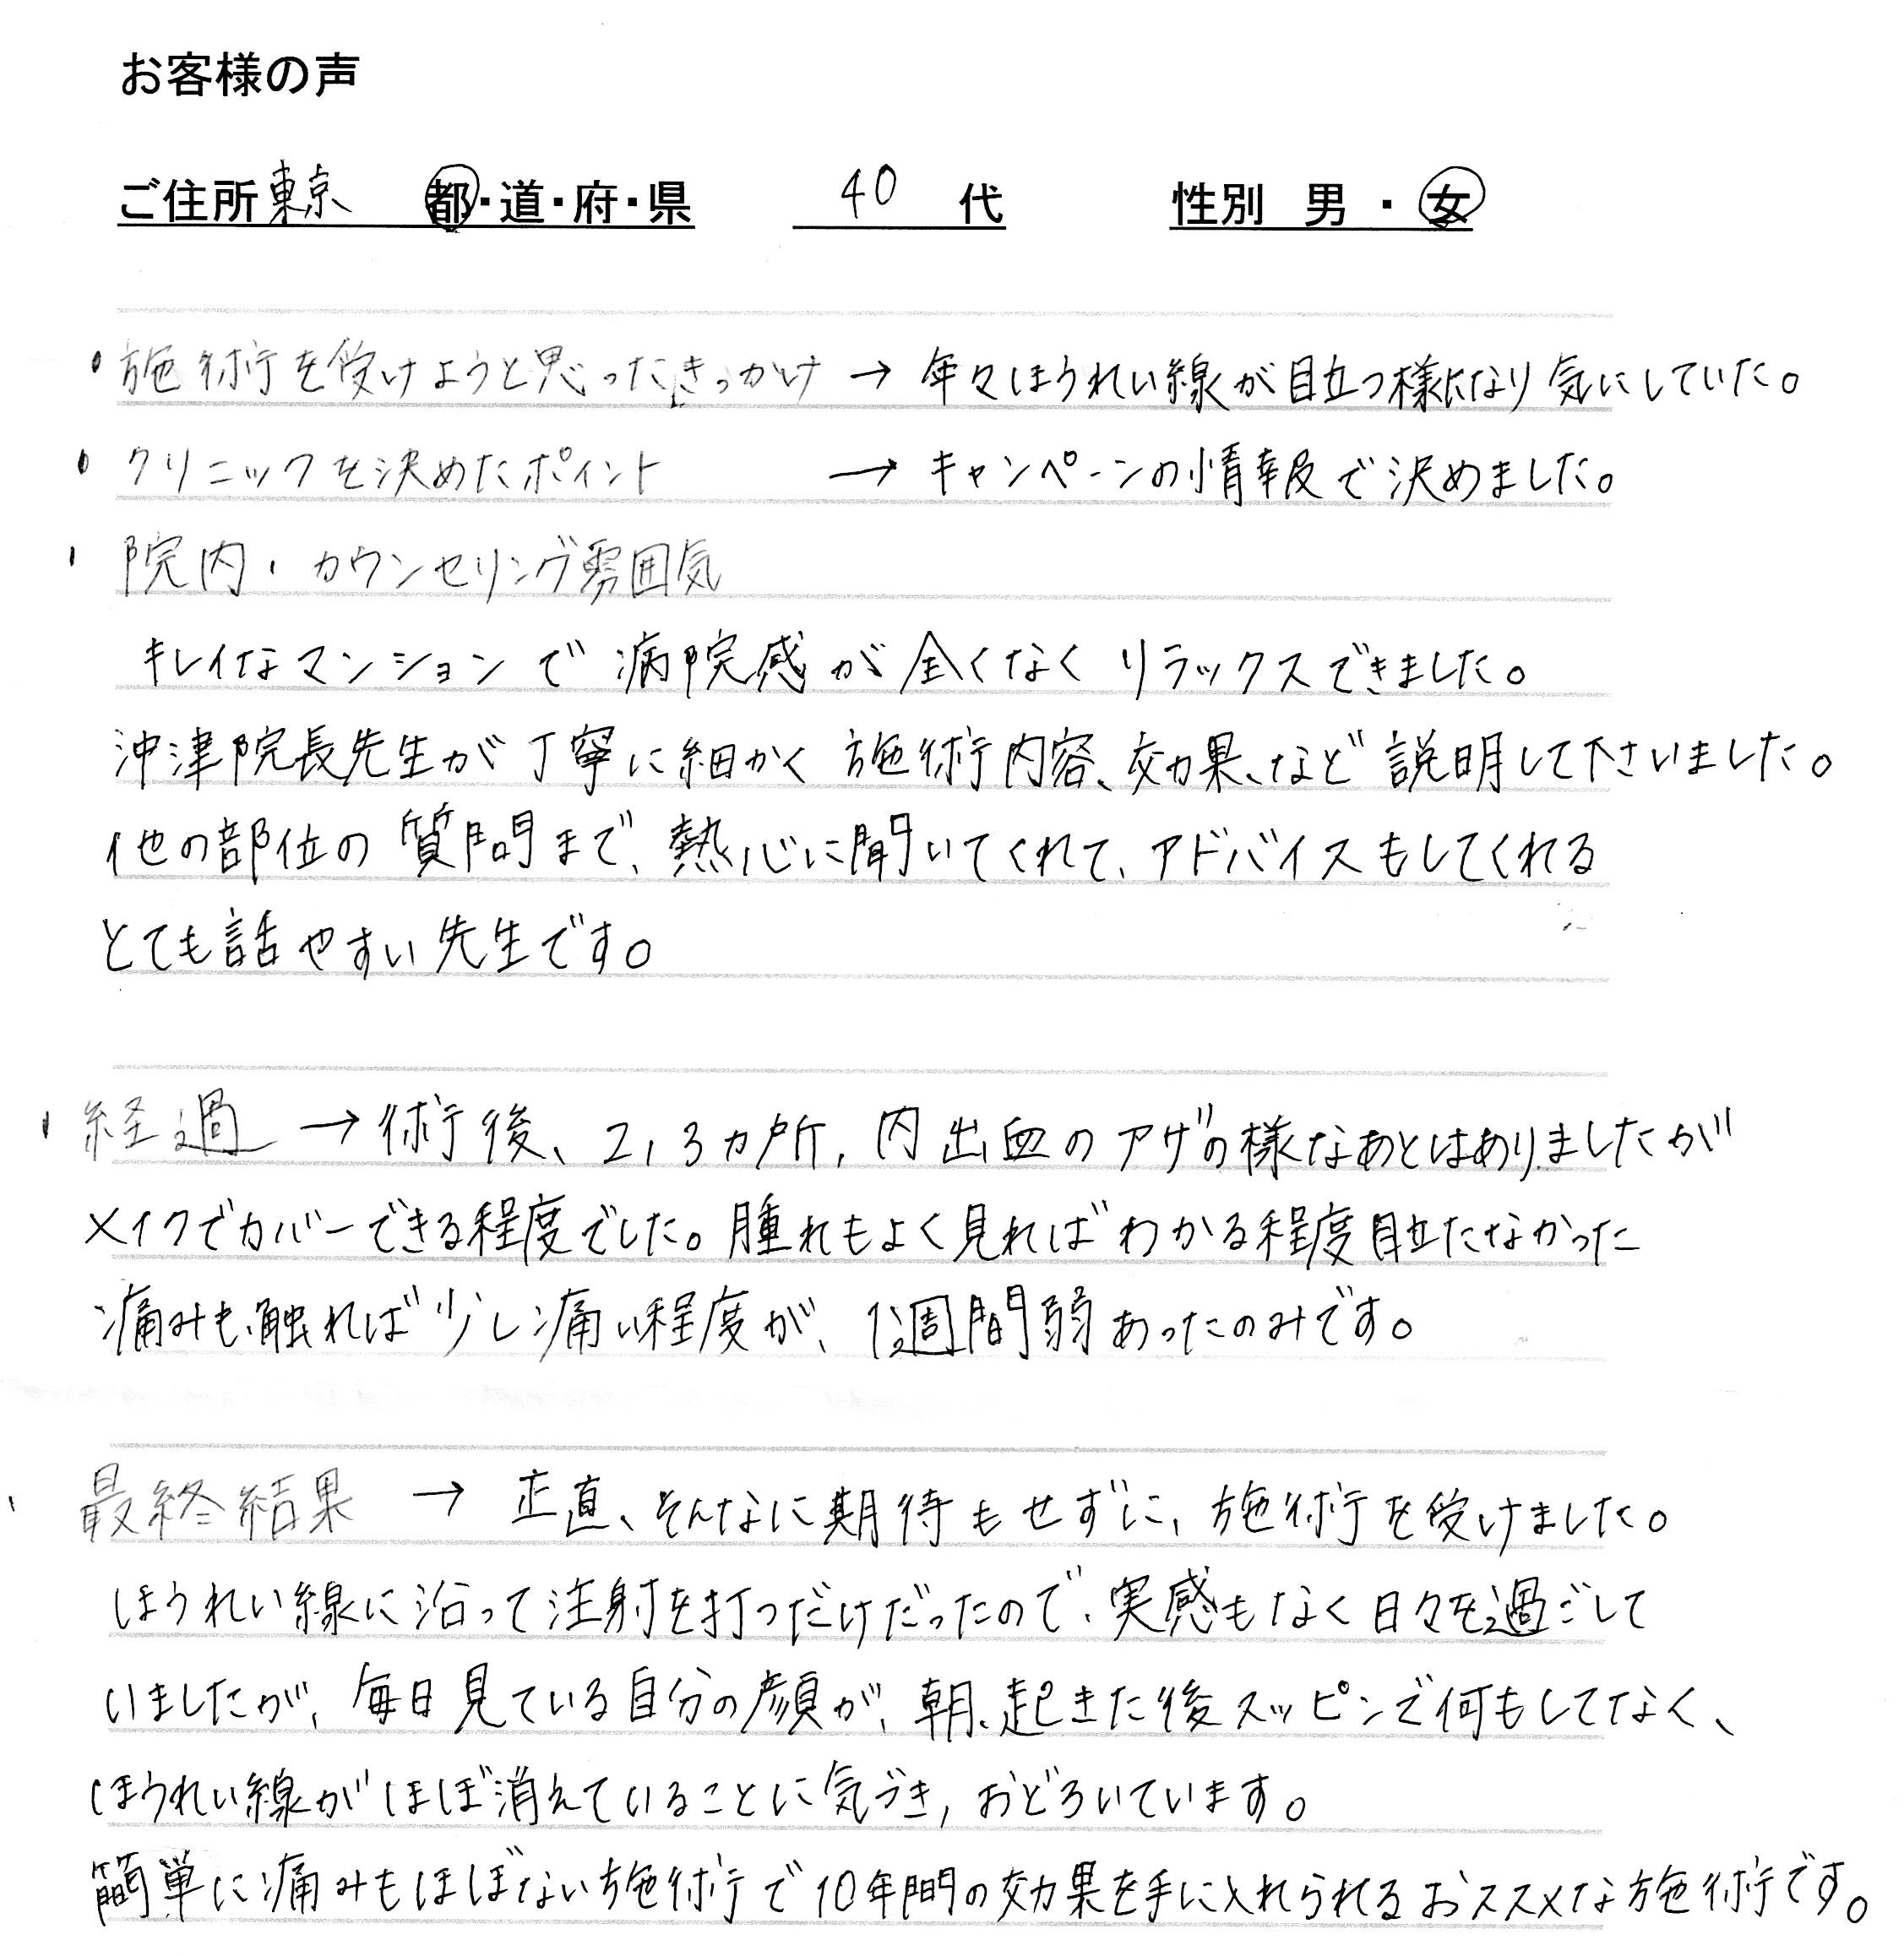 お客様の声
ご住所 東京 都・道・府・県 40 代 性別 男・女
・施術を受けようと思ったきっかけ → 年々ほうれい線が目立つ様になり気にしていた。
・クリニックを決めたポイント → キャンペーンの情報で決めました。
・院内・カウンセリング雰囲気
キレイなマンションで病院感が全くなくリラックスできました。
沖津院長先生が丁寧に細かく施術内容、効果、など説明して下さいました。
他の部位の質問まで、熱心に聞いてくれて、アドバイスもしてくれる
とても話やすい先生です。
・経過 → 術後、2,3ヵ所、内出血のアザの様なあとはありましたが
メイクでカバーできる程度でした。腫れもよく見ればわかる程度目立たなかった
痛みも、触れば少し痛い程度が、1週間弱あったのみです。
・最終結果 → 正直、そんなに期待もせずに、施術を受けました。
ほうれい線に沿って注射を打つだけだったので、実感もなく日々を過ごして
いましたが、毎日見ている自分の顔が、朝、起きた後スッピンで何もしてなく、
ほうれい線がほぼ消えていることに気づき、おどろいています。
簡単に痛みもほぼない施術で10年間の効果を手に入れられるおススメな施術です。